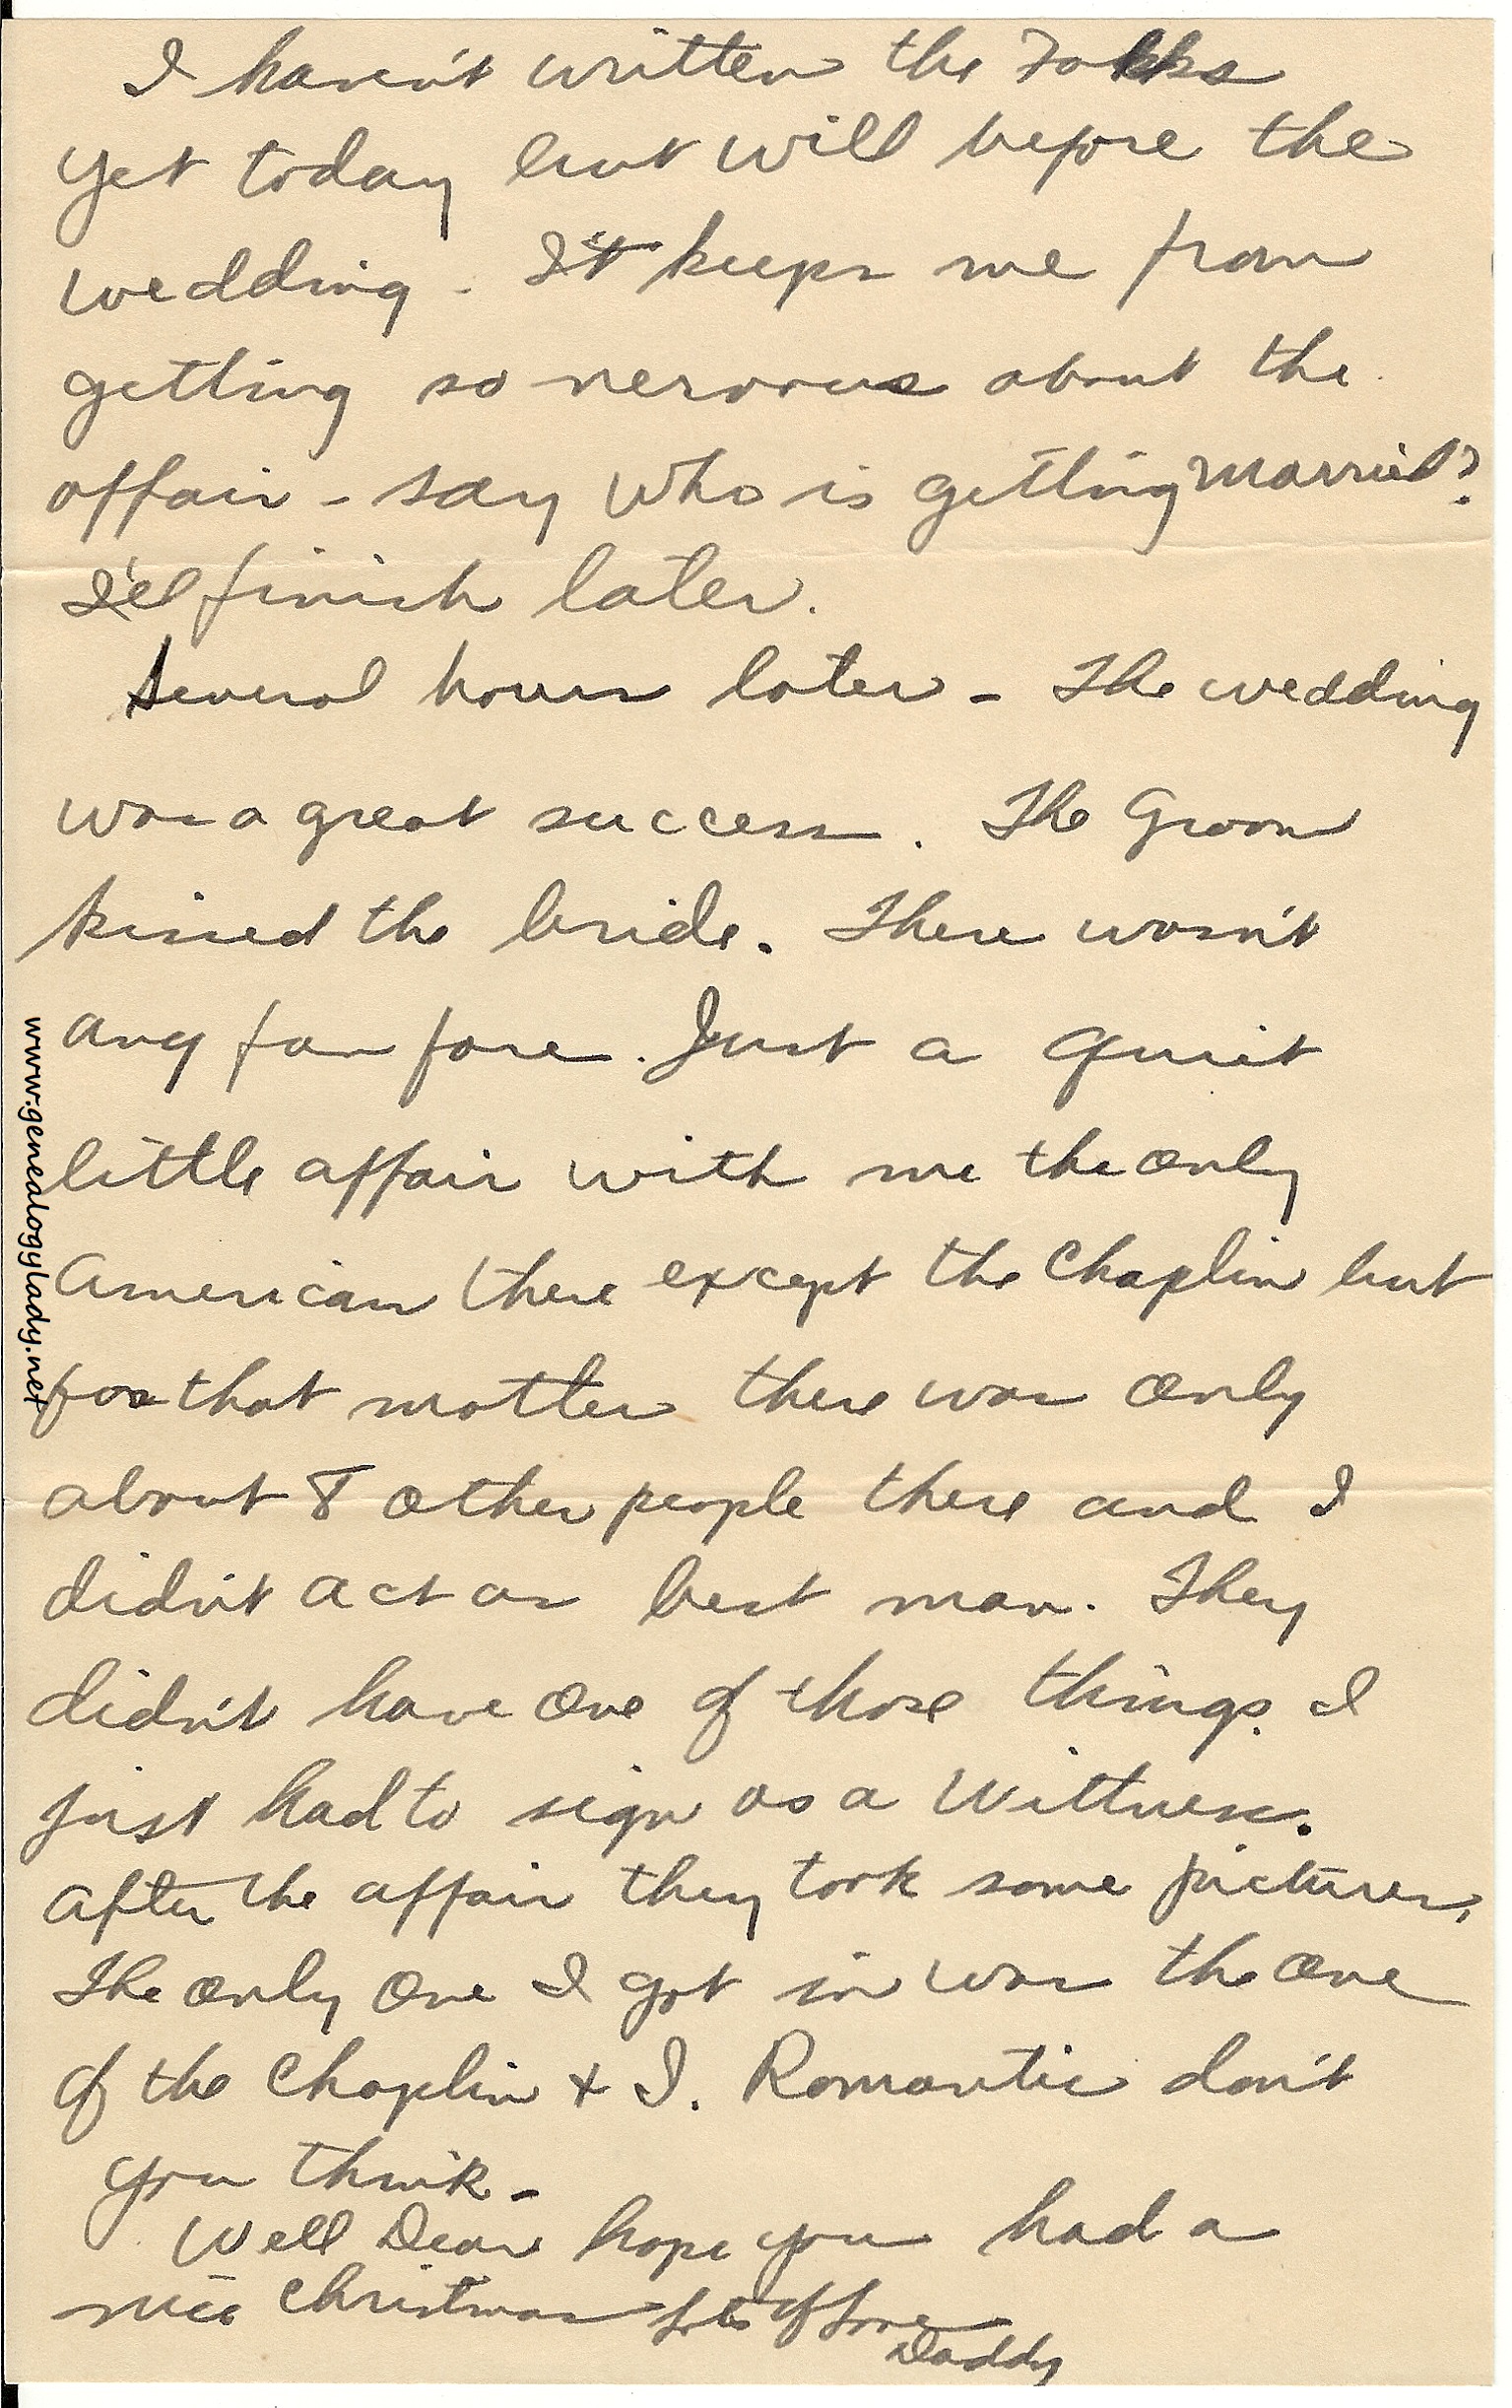 I haven't written the Folks
yet today but will before the
wedding. It keeps me from
getting so nervous about the
affair - say who is getting married?
I'el finish later.
Several hours later - The wedding
was a great success. The Groom
kissed the bride. There wasn't
any fan fare. Just a quiet
little affair with me the only
American there except the Chaplin but
for that matter there was only
about 8 other people there and I
didn't act as best man. They
didn't have one of those things. I
just had to sign as a Wittness.
After the affair they took some pictures.
The only one I got in was the one
of the Chaplin & I. Romantic don't
you think -
Well Dear hope you had a
nice Christmas Lots of Love
Daddy
www.genealogylady.net